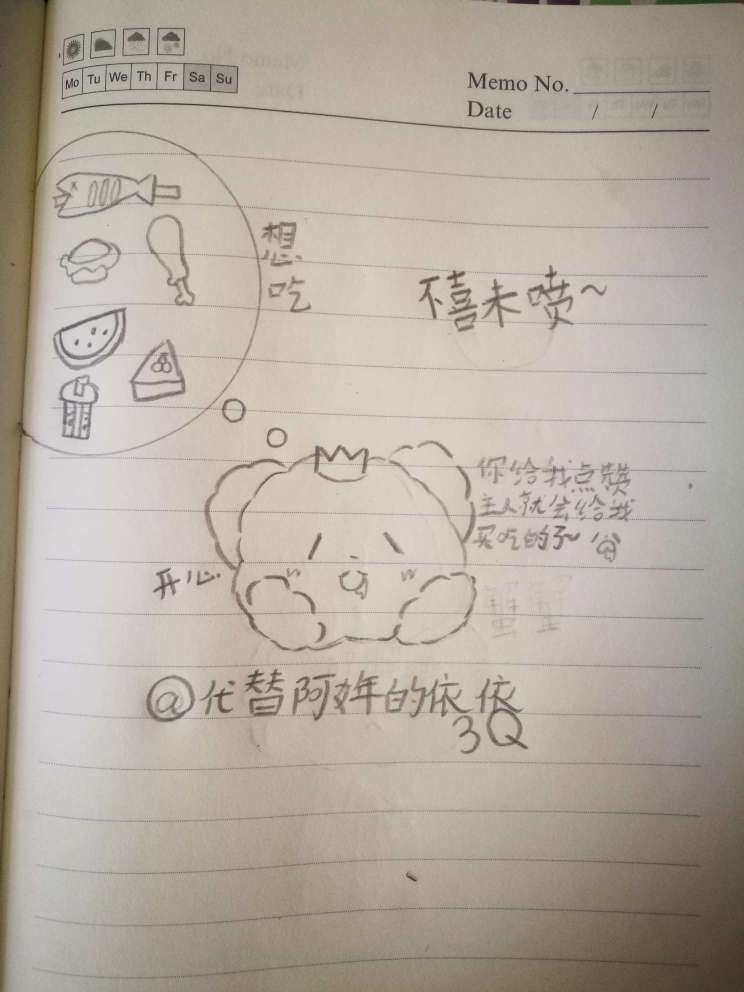 Mo Tu We Th Fr Sa Su
Memo No.
Date / /
想
吃
不喜未喷~
你给我点赞
主人就会给我
买吃的了~
开心
@代替阿姩的依依
3Q